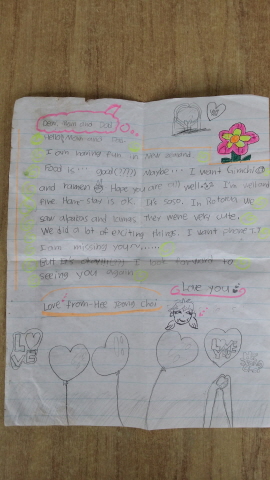 Dear Mom and Dad
Hello, Mom and Dad.
I am having fun in New Zealand.
Food is... good(????) Maybe... I want kimchi
and ramen Hope you are all well. I'm
fine. Home stay is ok. It's soso. In Rotorua we
saw alpacas and lambs they were very cute.
We did a lot of exciting things. I want
I am missing you
But I look forward to
seeing you again
Love you
Love from- Hee Joong Choi
LOVE